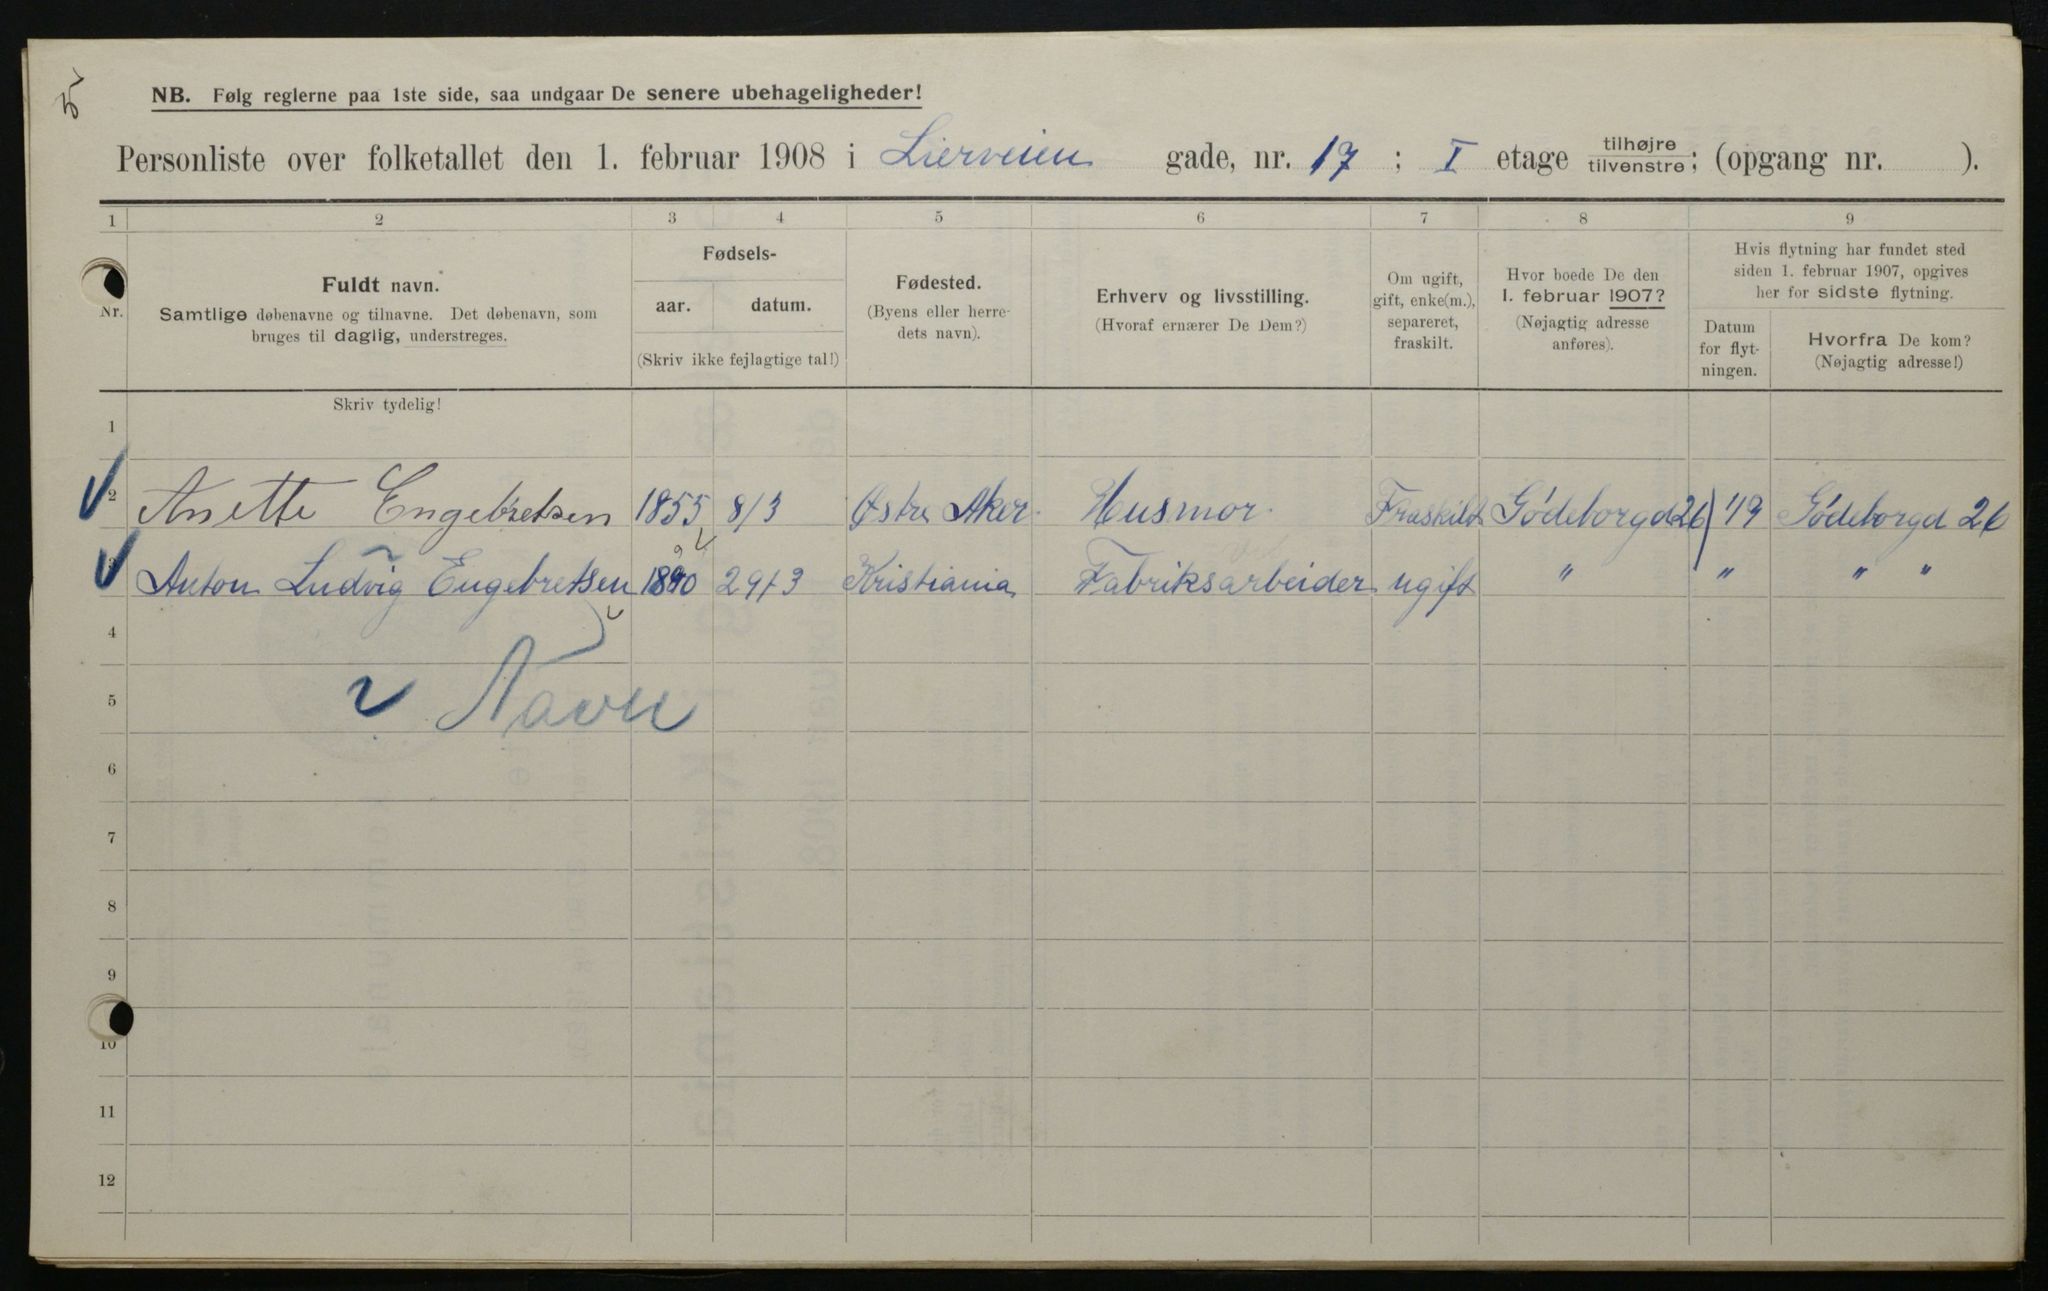 NB. Følg reglerne paa 1ste side, saa undgaar De senere ubehageligheder!
Personliste over folketallet den 1. februar 1908 i Lierveien gade, nr. 17 ; I etage tilhøjre tilvenstre; (opgang nr. ).
1 2 3 4 5 6 7 8 9
Nr.
Fuldt navn.
Samtlige døbenavne og tilnavne. Det døbenavn, som
bruges til daglig, understreges.
Fødsels-
aar. datum.
(Skriv ikke fejlagtige tal!)
Fødested.
(Byens eller herre-
dets navn).
Erhverv og livsstilling.
(Hvoraf ernærer De Dem?)
Om ugift,
gift, enke(m.),
separeret,
fraskilt.
Hvor boede De den
1. februar 1907?
(Nøjagtig adresse
anføres).
Hvis flytning har fundet sted
siden 1. februar 1907, opgives
her for sidste flytning.
Datum
for flyt-
ningen.
Hvorfra De kom?
(Nøjagtig adresse!)
Skriv tydelig!
1
2 Anette Engebretsen 1855 8/3 Østre Aker. Husmor. Fraskilt Gódeborgd 26 1/9 Gódeborgd 26
3 Anton Ludvig Engebretsen 1890 29/3 Kristiania Fabriksarbeider ugift " " " "
4
5 Navn
6
7
8
9
10
11
12